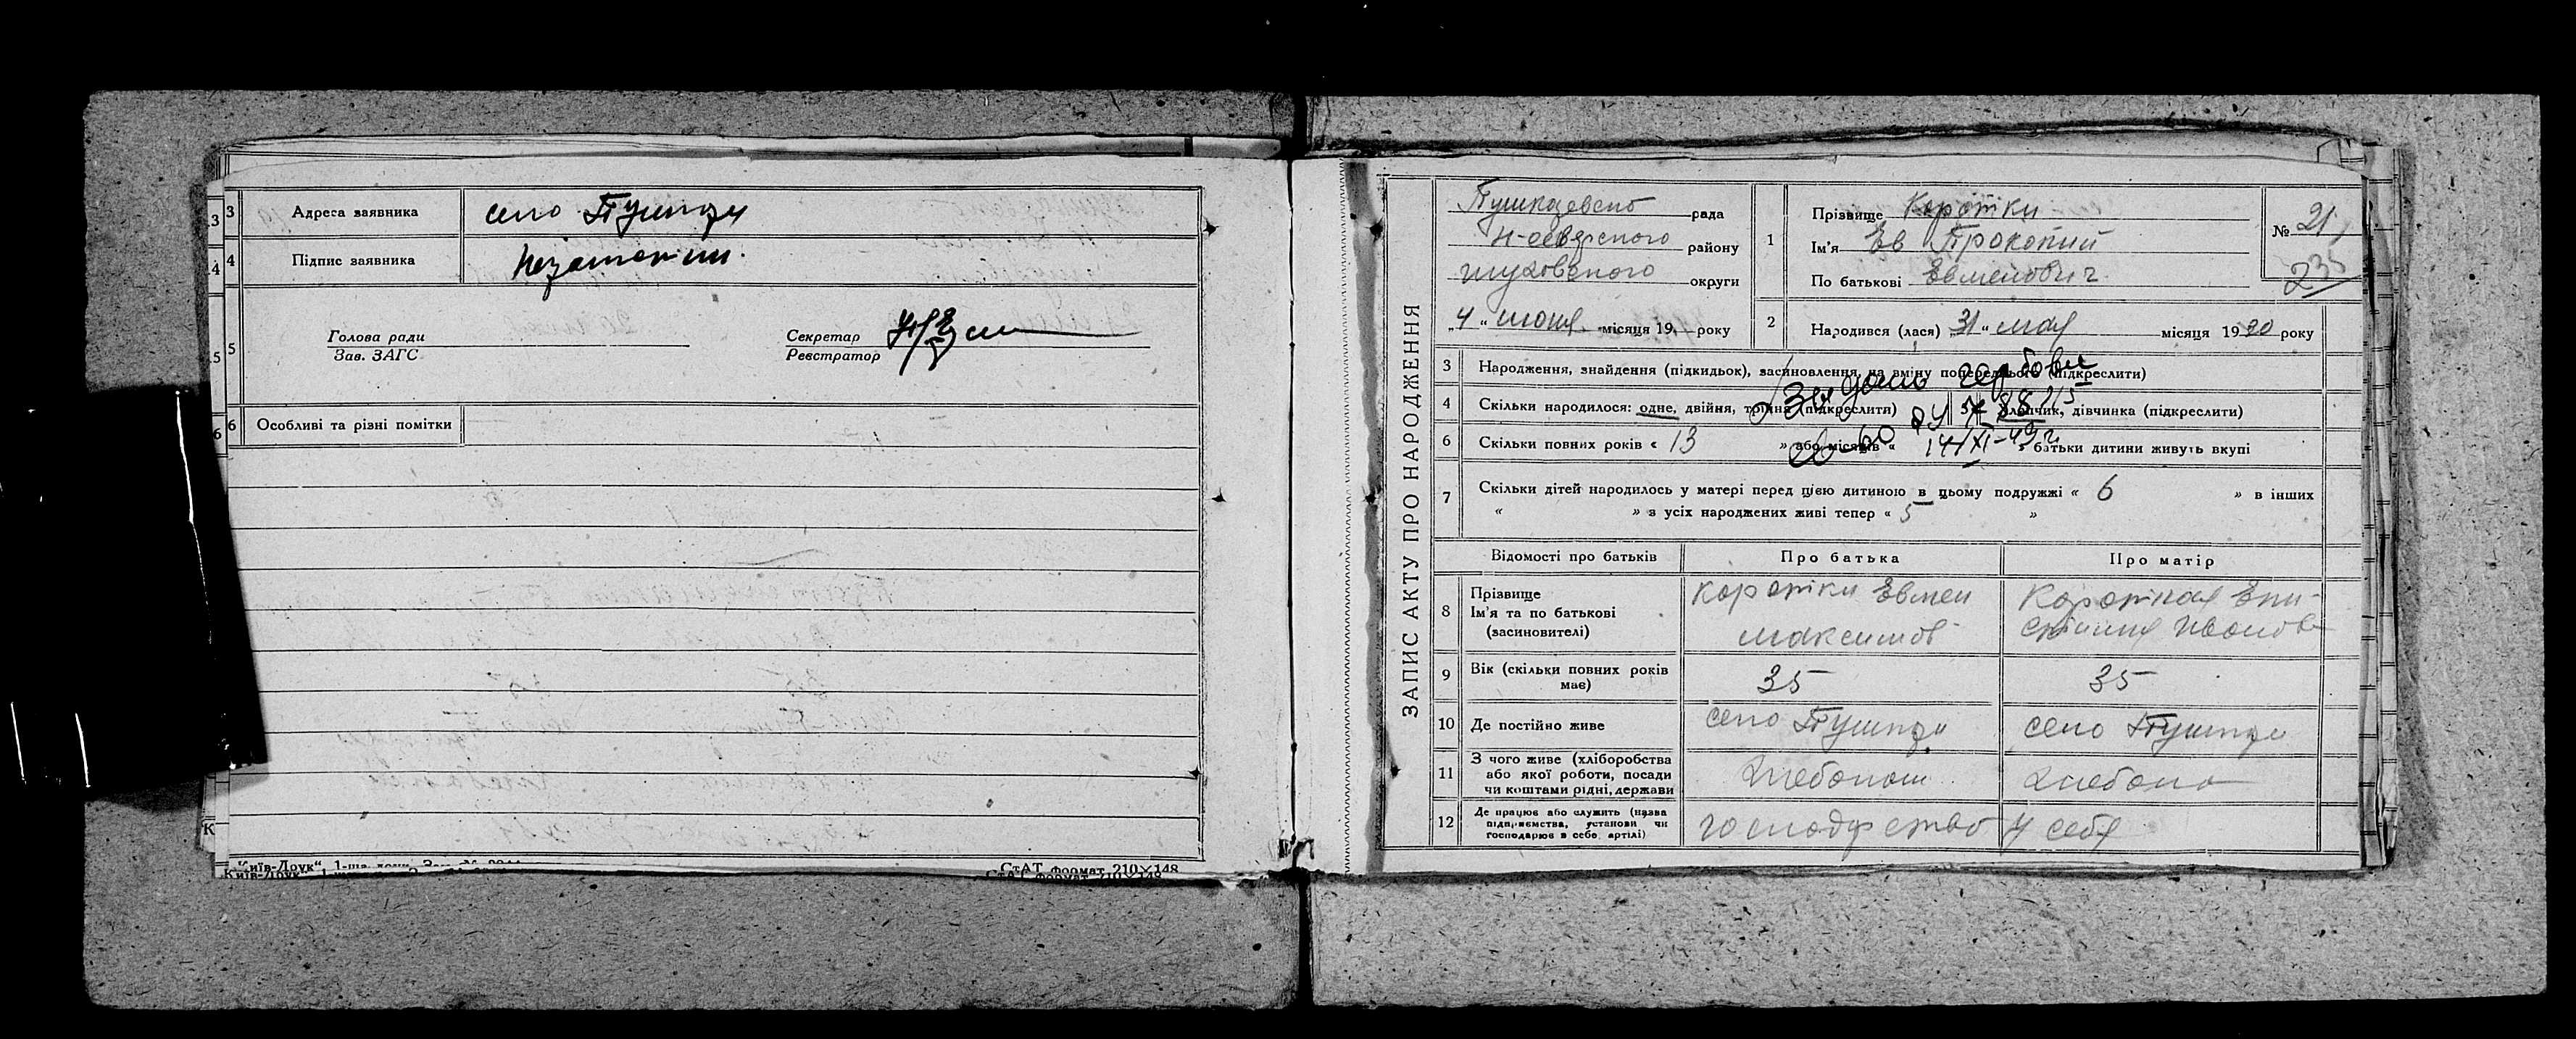 3 3 Адреса заявника село Пушкари
4 4 Підпис заявника
Голова ради
Зав. ЗАГС
Секретар
Реєстратор
5 5
6 6 Особливі та різні помітки
К
„Київ-Друк“ 1-ша друк. Зам. №
СтАТ формат 210×148
Київ-Друк“
СтАТ формат 210×148
ЗАПИС АКТУ ПРО НАРОДЖЕННЯ
Пушкаревско рада
Н-северского району
глуховского округи
„4“ июня місяця 19 року
1 Прізвище Коротки
Ім'я Ев Прокопий
По батькові Евменович
№ 21
235
2 Народився (лася) „31“ мая місяця 1930 року
3 Народження, знайдення (підкидьок), засиновлення, на зміну попереднього (підкреслити)
4 Скільки народилося: одне, двійня, трійня (підкреслити) 5 Хлопчик, дівчинка (підкреслити)
6 Скільки повних років « 13 » або місяців « » батьки дитини живуть вкупі
14/XI-49 г.
7 Скільки дітей народилось у матері перед цією дитиною в цьому подружжі « 6 » в інших
« » з усіх народжених живі тепер « 5 »
Відомості про батьків Про батька Про матір
8 Прізвище Ім'я та по батькові (засиновителі) Коротки Евмен Максимов Короткая Епи- Иванова
9 Вік (скільки повних років має) 35 35
10 Де постійно живе село Пушкари село Пушкари
11 З чого живе (хліборобства або якої роботи, посади чи коштами рідні, держави Хлебопаш Хлебопа
12 Де працює або служить (назва підприємства, установи чи господарює в себе, артілі) господарство у себя